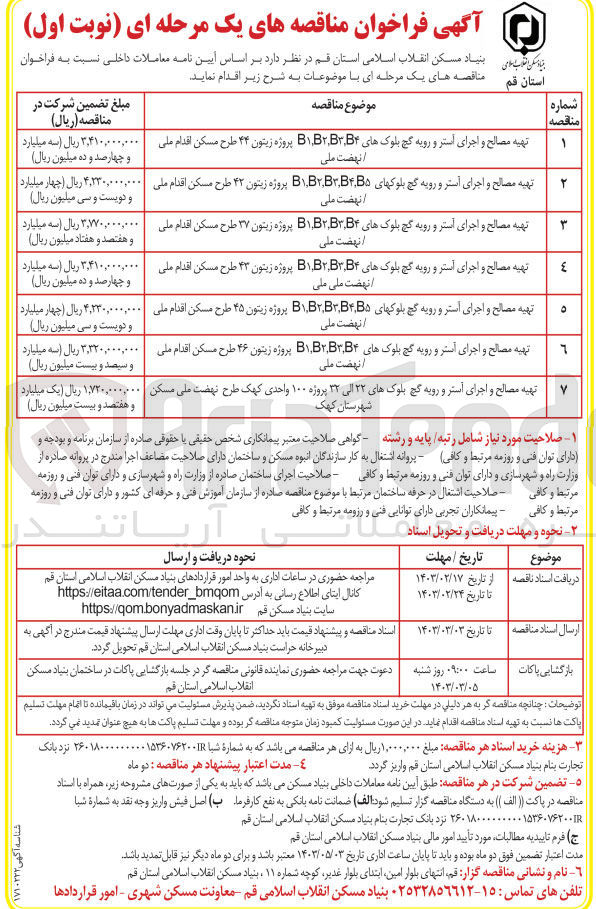 آگهی فراخوان مناقصه های یک مرحله ای (نوبت اول)
بنیاد مسکن انقلاب اسلامی
استان قم
بنیاد مسکن انقلاب اسلامی استان قم در نظر دارد بر اساس آیین نامه معاملات داخلی نسبت به فراخوان
مناقصه های یک مرحله ای با موضوعات به شرح زیر اقدام نماید.
شماره مناقصه موضوع مناقصه مبلغ تضمین شرکت در مناقصه(ریال)
۱ تهیه مصالح و اجرای آستر و رویه گچ بلوک های B۱,B۲,B۳,B۴ پروژه زیتون ۴۴ طرح مسکن اقدام ملی ۳,۴۱۰,۰۰۰,۰۰۰ ریال (سه میلیارد
/ نهضت ملی و چهارصد و ده میلیون ریال)
۲ تهیه مصالح و اجرای آستر و رویه گچ بلوکهای B۱,B۲,B۳,B۴,B۵ پروژه زیتون ۴۲ طرح مسکن اقدام ملی ۴,۲۳۰,۰۰۰,۰۰۰ ریال (چهار میلیارد
/ نهضت ملی و دویست و سی میلیون ریال)
۳ تهیه مصالح و اجرای آستر و رویه گچ بلوک های B۱,B۲,B۳,B۴ پروژه زیتون ۳۷ طرح مسکن اقدام ملی ۳,۷۷۰,۰۰۰,۰۰۰ ریال (سه میلیارد
/ نهضت ملی و هفتصد و هفتاد میلیون ریال)
۴ تهیه مصالح و اجرای آستر و رویه گچ بلوک های B۱,B۲,B۳,B۴ پروژه زیتون ۴۳ طرح مسکن اقدام ملی ۳,۴۱۰,۰۰۰,۰۰۰ ریال (سه میلیارد
/ نهضت ملی ملی و چهارصد و ده میلیون ریال)
۵ تهیه مصالح و اجرای آستر و رویه گچ بلوکهای B۱,B۲,B۳,B۴,B۵ پروژه زیتون ۴۵ طرح مسکن اقدام ملی ۴,۲۳۰,۰۰۰,۰۰۰ ریال (چهار میلیارد
/ نهضت ملی و دویست و سی میلیون ریال)
۶ تهیه مصالح و اجرای آستر و رویه گچ بلوک های B۱,B۲,B۳,B۴ پروژه زیتون ۴۶ طرح مسکن اقدام ملی ۳,۳۲۰,۰۰۰,۰۰۰ ریال (سه میلیارد
/ نهضت ملی و سیصد و بیست میلیون ریال)
۷ تهیه مصالح و اجرای آستر و رویه گچ بلوک های ۲۲ الی ۳۲ پروژه ۱۰۰ واحدی کهک طرح نهضت ملی مسکن ۱,۷۲۰,۰۰۰,۰۰۰ ریال (یک میلیارد
شهرستان کهک و هفتصد و بیست میلیون ریال)
۱- صلاحیت مورد نیاز شامل رتبه/ پایه و رشته -گواهی صلاحیت معتبر پیمانکاری شخص حقیقی یا حقوقی صادره از سازمان برنامه و بودجه و
(دارای توان فنی و روزمه مرتبط و کافی) - پروانه اشتغال به کار سازندگان انبوه مسکن و ساختمان دارای صلاحیت مضاعف اجرا مندرج در پروانه صادره از
وزارت راه و شهرسازی و دارای توان فنی و روزمه مرتبط و کافی - صلاحیت اجرای ساختمان صادره از وزارت راه و شهرسازی و دارای توان فنی و روزمه
مرتبط و کافی - صلاحیت اشتغال در حرفه ساختمان مرتبط با موضوع مناقصه صادره از سازمان آموزش فنی و حرفه ای کشور و دارای توان فنی و روزمه
مرتبط و کافی - پیمانکاران تجربی دارای توانایی فنی و رزومه مرتبط و کافی
۲- نحوه و مهلت دریافت و تحویل اسناد
موضوع تاریخ / مهلت نحوه دریافت و ارسال
دریافت اسناد ناقصه از تاریخ ۱۴۰۳/۰۲/۱۷ مراجعه حضوری در ساعات اداری به واحد امور قراردادهای بنیاد مسکن انقلاب اسلامی استان قم
تا تاریخ ۱۴۰۳/۰۲/۲۴ کانال ایتای اطلاع رسانی به آدرس https://eitaa.com/tender_bmqom
سایت بنیاد مسکن قم https://qom.bonyadmaskan.ir
ارسال اسناد مناقصه تا تاریخ ۱۴۰۳/۰۳/۰۳ اسناد مناقصه و پیشنهاد قیمت باید حداکثر تا پایان وقت اداری مهلت ارسال پیشنهاد قیمت مندرج در آگهی به
دبیرخانه حراست بنیاد مسکن انقلاب اسلامی استان قم تحویل گردد.
بازگشایی پاکات ساعت ۰۹:۰۰ روز شنبه دعوت جهت مراجعه حضوری نماینده قانونی مناقصه گر در جلسه بازگشایی پاکات در ساختمان بنیاد مسکن
۱۴۰۳/۰۳/۰۵ انقلاب اسلامی استان قم
توضیحات : چنانچه مناقصه گر به هر دلیلي در مهلت خرید اسناد مناقصه موفق به تهیه اسناد نگردید، ضمن پذیرش مسئولیت می تواند در زمان باقیمانده تا اتمام مهلت تسلیم
پاکت ها نسبت به تهیه اسناد مناقصه اقدام نماید. در این صورت مسئولیت کمبود زمان متوجه مناقصه گر بوده و مهلت تسلیم پاکت ها به هیچ عنوان تمدید نمي گردد.
۳- هزینه خرید اسناد هر مناقصه: مبلغ ۱,۰۰۰,۰۰۰ریال به ازای هر مناقصه می باشد که به شمارهٔ شبا
تجارت بنام بنیاد مسکن انقلاب اسلامی استان قم واریز گردد. ۴- مدت اعتبار پیشنهاد هر مناقصه : دو ماه
۵- تضمین شرکت در هر مناقصه: طبق آیین نامه معاملات داخلی بنیاد مسکن می باشد که باید به یکی از صورت‌های مشروحه زیر، همراه با اسناد
مناقصه در پاکت (( الف )) به دستگاه مناقصه گزار تسلیم شود:الف) ضمانت نامه بانکی به نفع کارفرما. ب) اصل فیش واریز وجه نقد به شمارهٔ شبا
نزد بانک تجارت بنام بنیاد مسکن انقلاب اسلامی استان قم
ج) فرم تاییدیه مطالبات، مورد تأیید امور مالی بنیاد مسکن انقلاب اسلامی استان قم
مدت اعتبار تضمین فوق دو ماه بوده و باید تا پایان ساعت اداری تاریخ ۱۴۰۳/۰۵/۰۳ معتبر باشد و برای دو ماه دیگر نیز قابل‌تمدید باشد.
۶- نام و نشانی مناقصه گزار: قم، انتهای بلوار امین، ابتدای بلوار غدیر، کوچه شماره ۱۱ ، بنیاد مسکن انقلاب اسلامی استان قم
تلفن های تماس : ۱۵-۰۲۵۳۲۸۵۶۶۱۲ بنیاد مسکن انقلاب اسلامی قم -معاونت مسکن شهری - امور قراردادها
شناسه آگهی ۱۷۱۰۲۳۲